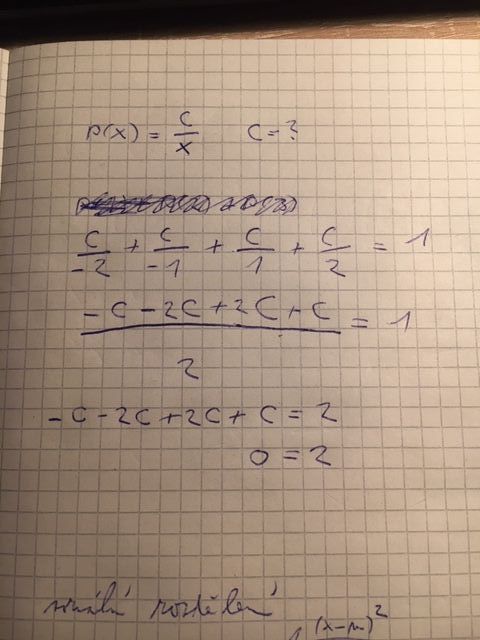 p(x) = c/x   c = ?
c/-2 + c/-1 + c/1 + c/2 = 1
(-c - 2c + 2c + c)/2 = 1
-c - 2c + 2c + c = 2
0 = 2
rozdělení
(x-μ)²